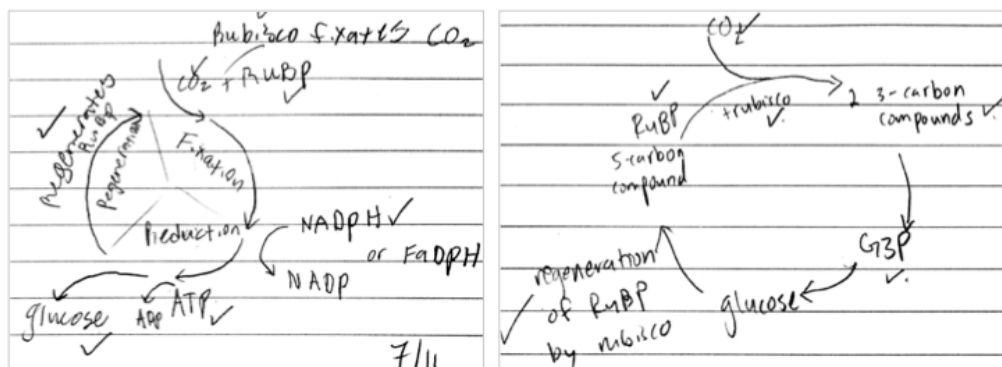 Rubisco fixates CO₂
CO₂ + RuBP
Regenerates
RuBP
Regeneration
Fixation
Reduction
NADPH
or FADPH
NADP
ATP
ADP
glucose
7/11
CO₂
RuBP
5-carbon
compound
+rubisco
2 3-carbon
compounds
G3P
glucose
regeneration
of RuBP
by rubisco